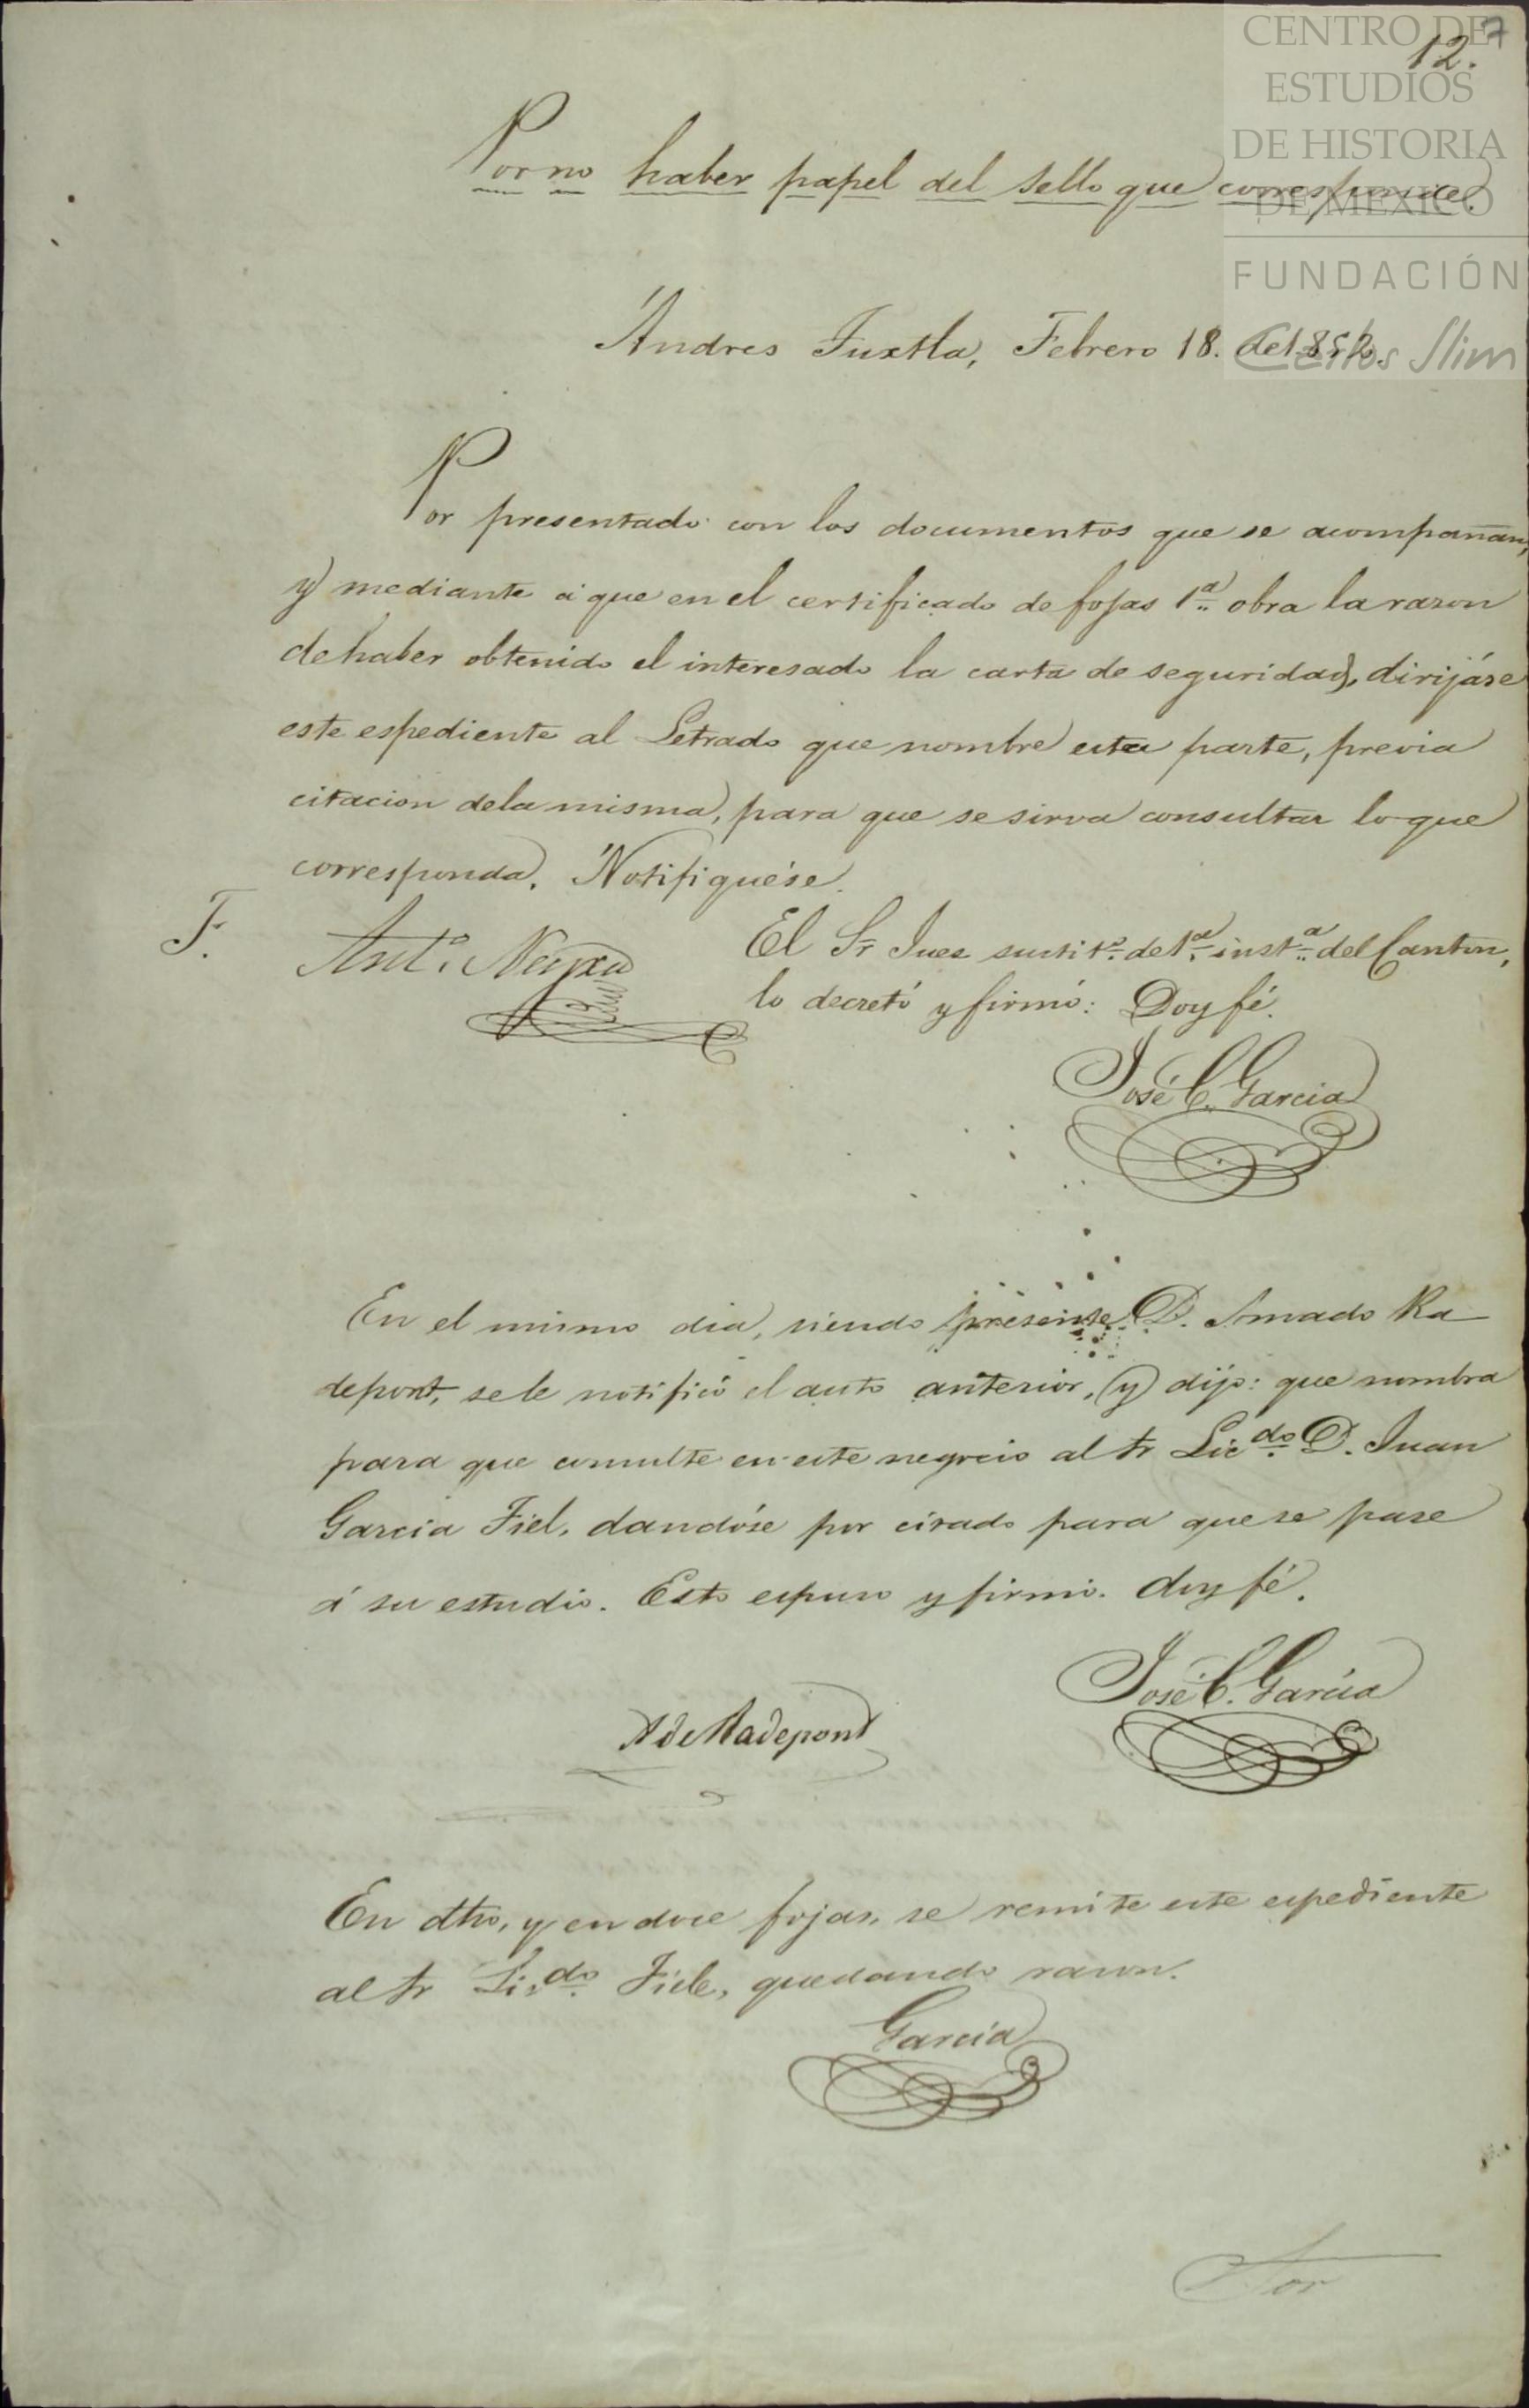 CENTRO DE
ESTUDIOS
DE HISTORIA
DE MEXICO
FUNDACIÓN
Carlos Slim
12.
Por no haber papel del sello que corresponde.
Andres Tuxtla, Febrero 18. de 1852.
Por presentado con los documentos que se acompañan,
y mediante á que en el certificado de fojas 1.ª obra la razon
de haber obtenido el interesado la carta de seguridad, dirijáse
este espediente al Letrado que nombre esta parte, previa
citacion de la misma, para que se sirva consultar lo que
corresponda. Notifiquése.
F.
Ant.º
El Sr Juez sustit.º de 1.ª inst.ª del Canton,
lo decretó y firmó: Doy fé.
José C. Garcia
En el mismo dia, siendo presente D. Amado Ra
depont, se le notificó el auto anterior, y dijo: que nombra
para que consulte en este negocio al Sr Lic.do D. Juan
Garcia Fiel, dandóse por citado para que se pase
á su estudio. Esto espuso y firmó. doy fé.
A de Radepont
José C. Garcia
En dho, y en doce fojas, se remite este espediente
al Sr Lic.do Fiel, quedando razon.
Garcia